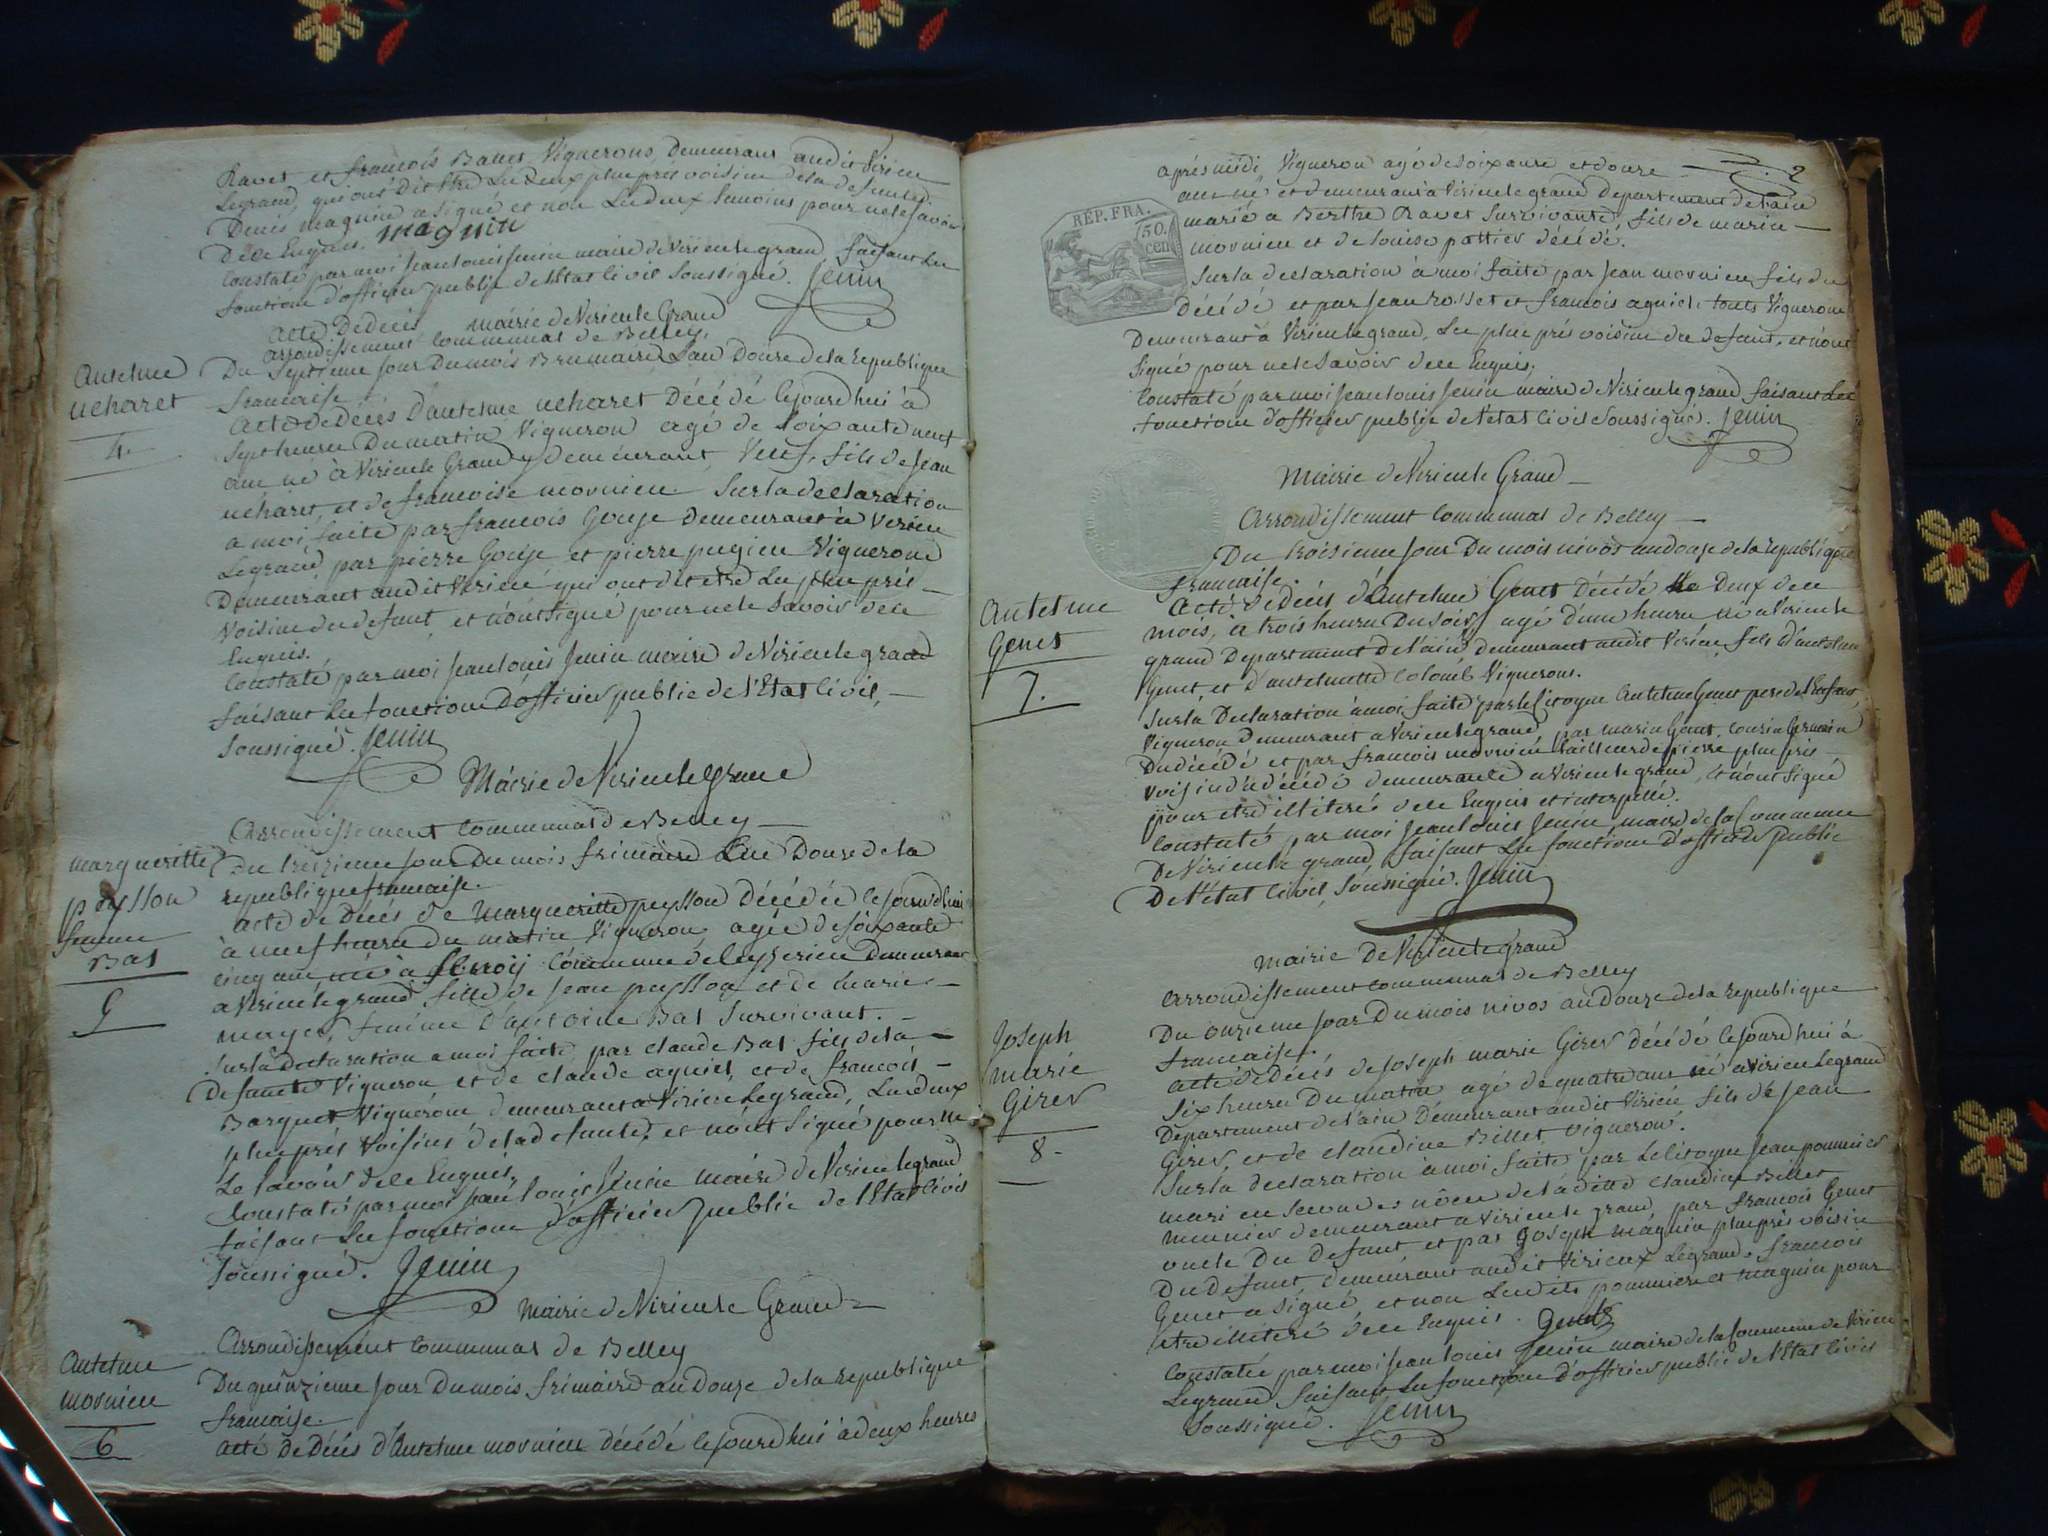 Ravet et françois Ballet Vignerons, Demeurant audit Virieu
Legrand, qui ont dit être Les deux plus près voisins de la defunte.
Denis maquin a signé et non Les deux temoins pour ne le savoir
De ce Enquis. maquin
Constaté par moi jean louis Jenin maire de Virieu le grand faisant Les
fonctions d'officier public de l'Etat Civil Soussigné. Jenin
acte De Décès mairie de Virieu le Grand
arrondissement Communal de Belley.
Antelme
Ucharet
4.
Du Septieme jour Du mois Brumaire L'an Douze de la Republique
francaise
acte de Décès d'antelme ucharet Décédé Cejourd'hui à
Sept heures Du matin Vigneron agé de Soixante neuf
ans né à Virieu le Grand y demeurant, Veuf, fils de jean
ucharet, et de francoise mornieu. Sur la declaration
a moi faite par francois Gouje demeurant à Virieu
Legrand, par pierre Gouje et pierre pugieu Vignerons
Demeurant audit Virieu qui ont dit etre Les plus près
Voisins du defunt, et n'ont signé pour ne le Savoir de ce
Enquis.
Constaté par moi jean louis Jenin maire de Virieu le grand
faisant Les fonctions D'officier public de l'Etat Civil,
Soussigné. Jenin
Mairie de Virieu le Grand
Arrondissement Communal de Belley
margueritte
peysson
femme
Bal
5
Du treizieme jour Du mois frimaire L'an Douze de la
republique francaise.
acte de Décés de Margueritte peysson Décédée Cejourd'hui
à neuf heures du matin Vigneron, agée de soixante
cinq ans née à Commune de Ceyzerieu Demeurant
a Virieu le grand fille de Jean peysson et de marie
mayet, femme D'antoine Bal Survivant.
Sur la Declaration a moi faite par claude Bal fils de la
Defunte Vigneron et de claude aguiet, et de francois
Barquet Vignerons demeurant a Virieu Legrand, Les deux
plus près Voisins de la defunte, et n'ont Signé pour ne
Le Savoir de ce Enquis,
Constaté par moi jean louis Jenin maire de Virieu legrand
faisant Les fonctions d'officier public de l'Etat Civil
Soussigné. Jenin
Mairie de Virieu le Grand
Arrondissement Communal de Belley
Antelme
mornieu
6
Du quinzieme jour Du mois frimaire an Douze de la Republique
francaise.
acte De Décès d'Antelme mornieu décédé Cejourd'hui à deux heures
2
après midi Vigneron agé de Soixante et douze
ans né et demeurant à Virieu le grand Departement de l'ain
marié a Berthe Ravet Survivante, fils de marin
mornieu et de louise pottier décédé.
RÉP. FRA.
50.
cen
Sur la declaration à moi faite par Jean mornieu fils du
décédé et par Jean rosset et francois aguiet, touts Vignerons
Demeurant à Virieu le grand, Les plus près voisins du defunt, et n'ont
Signé pour ne le Savoir de ce Enquis.
Constaté par moi jean louis Jenin maire de Virieu le grand faisant Les
fonctions d'officier public de l'etat Civil Soussigné. Jenin
Mairie de Virieu le Grand
Arrondissement Communal de Belley
Antelme
Genet
7.
Du troisieme jour Du mois nivos an douze de la republique
francaise.
acte de Décès d'Antelme Genet Décédé Le Deux de ce
mois, à trois heures Du Soir, agé d'une heure né a Virieu le
grand Departement de l'ain demeurant audit Virieu fils d'antelme
Genet, et d'antelmette Colomb Vignerons.
Sur la Declaration a moi faite par le Citoyen Antelme Genet pere de l'Enfant,
Vigneron demeurant a Virieu le grand, par marin Genet, cousin Germain
Du décédé et par francois mornieu tailleur de pierre plus près
Voisin du décédé demeurants a Virieu le grand, et n'ont Signé
pour etre illiterés de ce Enquis et interpellé.
Constaté par moi Jean louis Jenin maire de la Commune
De Virieu le grand faisant Les fonctions d'officier Public
De l'Etat Civil, Soussigné. Jenin
Mairie De Virieu le grand
Arrondissement communal de Belley
Joseph
marie
Girer
8.
Du onzieme jour Du mois nivos an douze de la Republique
francaise.
acte de Décés de Joseph marie Girer décédé Cejourd'hui à
Six heures Du matin agé de quatre ans né a Virieu Legrand
Departement de l'ain Demeurant audit Virieu fils de Jean
Girer, et de claudine Billet Vigneron.
Sur la declaration a moi faite par Le Citoyen Jean pommier
mari en Secondes nôces de la ditte Claudine Billet
meunier demeurant a Virieu le grand, par francois Genet
oncle Du Defunt, et par Joseph maquin plus près voisin
Du defunt, demeurant audit Virieux Legrand. francois
Genet a Signé, et non Lesdits pommier et maquin pour
etre illiteré de ce Enquis. Genet
Constaté par moi jean louis Jenin maire de la Commune de Virieu
Legrand faisant Les fonctions d'officier public de l'Etat Civil
Soussigné. Jenin